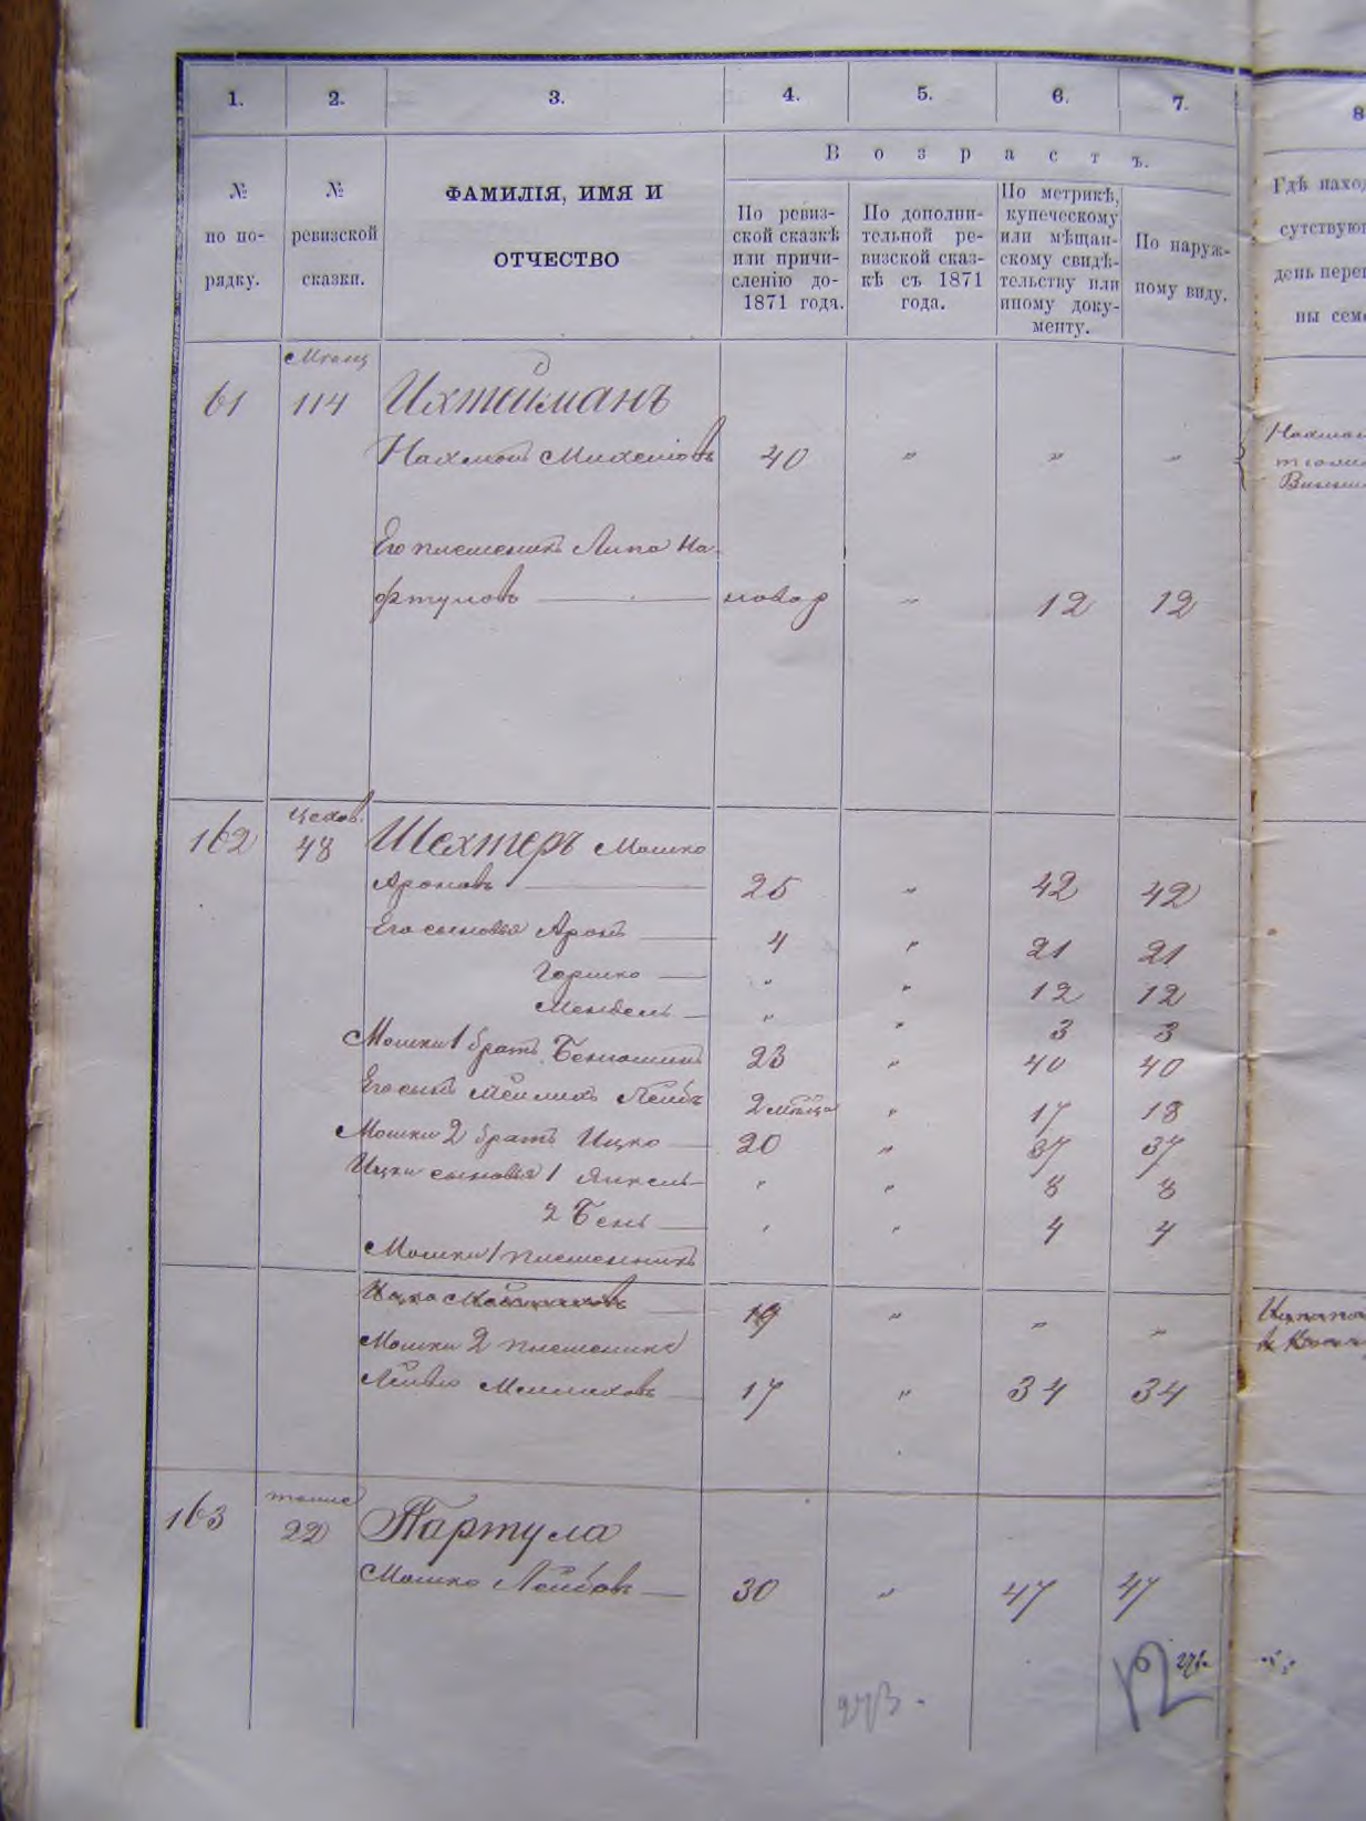 1. 2. 3. 4. 5. 6. 7. 8
В о з р а с т ъ.
№
по по-
рядку.
№
ревизской
сказки.
ФАМИЛІЯ, ИМЯ И
ОТЧЕСТВО
По ревиз-
ской сказкѣ
или причи-
сленію до-
1871 года.
По дополни-
тельной ре-
визской сказ-
кѣ съ 1871
года.
По метрикѣ,
купеческому
или мѣщан-
скому свидѣ-
тельству или
иному доку-
менту.
По наруж-
ному виду.
Гдѣ наход
сутствующ
день пере
ны сем
61 114 Ихтейманъ
Нахманъ 40 " " "
Его племеникъ Липа На-
фтуловъ — новор " 12 12
цехов.
162 48 Шехтеръ Мошко
Ароновъ — 25 " 42 42
Его сыновья Аронъ — 4 " 21 21
Гершко — " " 12 12
Мендель — " " 3 3
Мошки 1 братъ Беньминъ 23 " 40 40
Его сынъ Мейлихъ Лейбъ 2 мѣсяца " 17 18
Мошки 2 братъ Ицко — 20 " 37 37
Ицки сыновья 1 Янкель — " " 8 8
2 Бень — " " 4 4
Мошки 1 племенникъ
Ицко — 19 " " "
Мошки 2 племеникъ
Лейбъ Мейлиховъ — 17 " 34 34
163 22 Партула
Мошко Лейбовъ — 30 " 47 47
273.